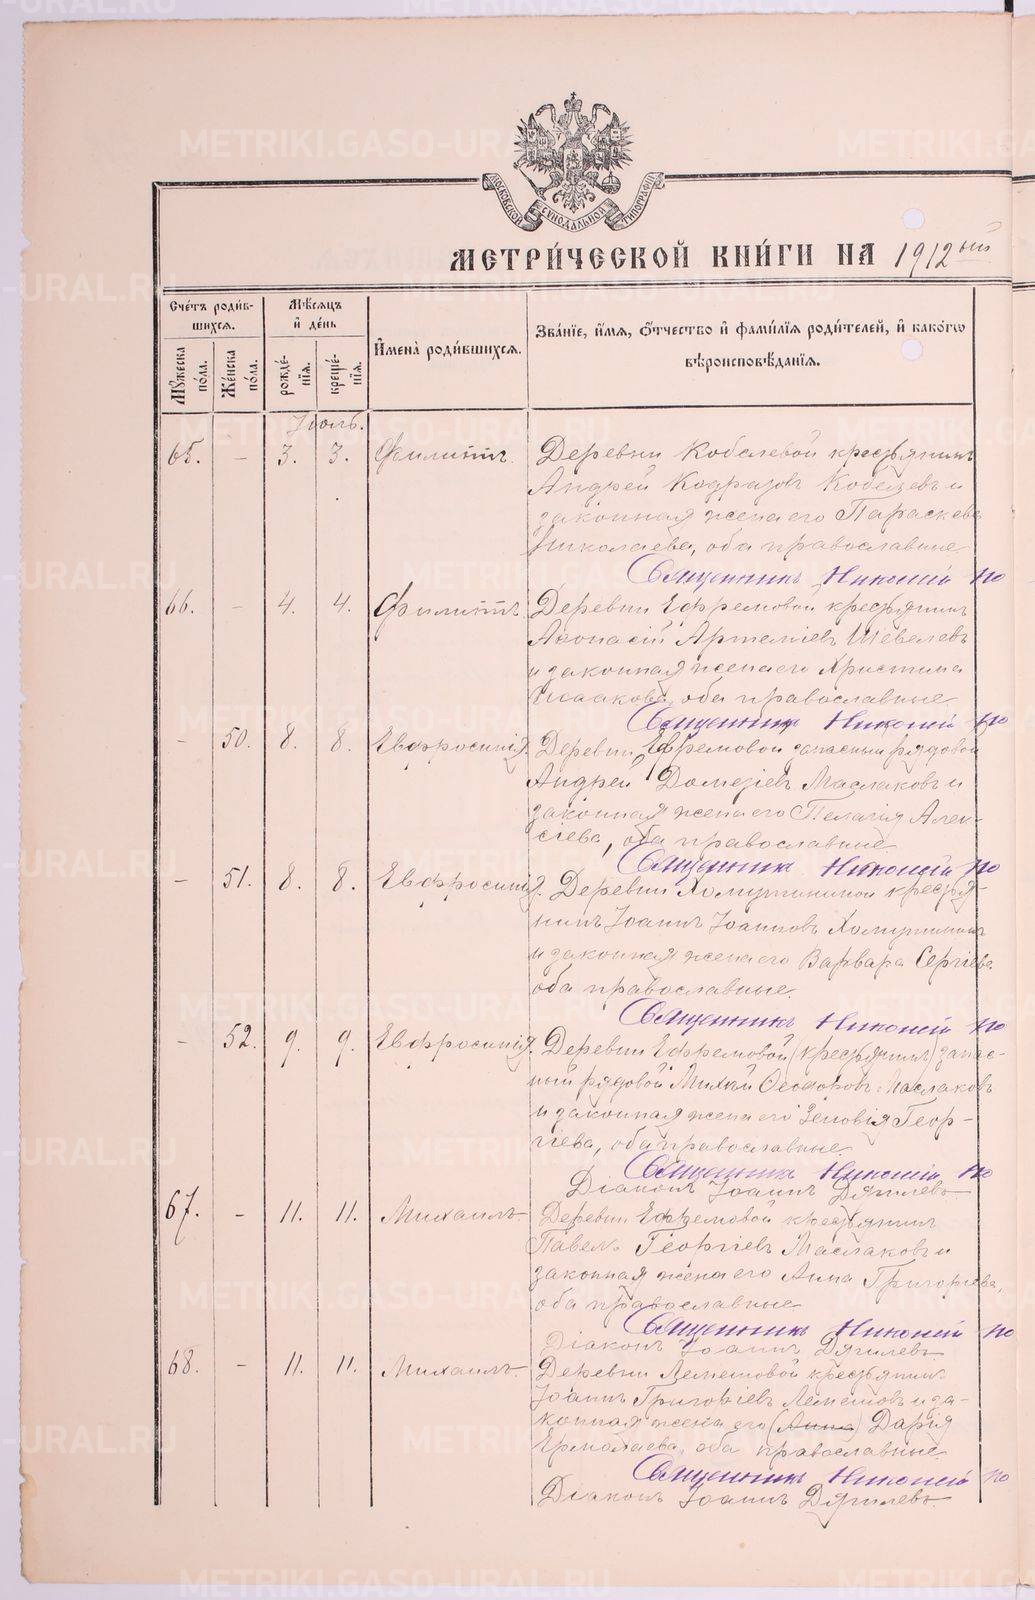 МОСКОВСКОЙ СУНОДАЛЬНОЙ ТИПОГРАФІИ
МЕТРИ́ЧЕСКОЙ КНИ́ГИ НА 1912ый
Сче́тъ роди́вшихся.
Мꙋ́жеска по́ла.
Же́нска по́ла.
Мѣ́сяцъ и҆ де́нь
рожде́нїя.
креще́нїя.
И҆мена̀ роди́вшихся.
Зва́нїе, и҆́мя, ѻ҆́тчество и҆ фами́лїя роди́телей, и҆ како́гѡ вѣроисповѣ́данїя.
Іюль.
65. - 3. 3. Филиппъ.
Деревни Кобелевой крестьянинъ
Андрей Кодратовъ Кобелевъ и
законная жена его Параскева
Николаева, оба православные
Священникъ Николай По
66. - 4. 4. Филиппъ.
Деревни Ефремовой крестьянинъ
Аѳонасій Артеміевъ Шевелевъ
и законная жена его Христина
Исаакова, оба православные
Священникъ Николай По
- 50. 8. 8. Евфросинія.
Деревни Ефремовой запасный рядовой
Андрей Маслаковъ и
законная жена его Пелагія Алек-
сіева, оба православные
Священникъ Николай По
- 51. 8. 8. Евфросинія.
Деревни Хомутининой крестья-
нинъ Іоаннъ Іоанновъ Хомутининъ
и законная жена его Варвара Сергіева
оба православные.
Священникъ Николай По
- 52. 9. 9. Евфросинія.
Деревни Ефремовой (крестьянинъ) запас-
ный рядовой Ѳеодоровъ Маслаковъ
и законная жена его Зиновія Геор-
гіева, оба православные.
Священникъ Николай По
Діаконъ Іоаннъ Дягилевъ
67. - 11. 11. Михаилъ.
Деревни Ефремовой крестьянинъ
Павелъ Георгіевъ Маслаковъ и
законная жена его Анна Григорьева,
оба православные
Священникъ Николай По
Діаконъ Іоаннъ Дягилевъ
68. - 11. 11. Михаилъ.
Деревни Лемешовой крестьянинъ
Іоаннъ Григоріевъ Лемешовъ и за-
конная жена его (Анна) Дарія
Ермолаева, оба православные
Священникъ Николай По
Діаконъ Іоаннъ Дягилевъ.
METRIKI.GASO-URAL.RU